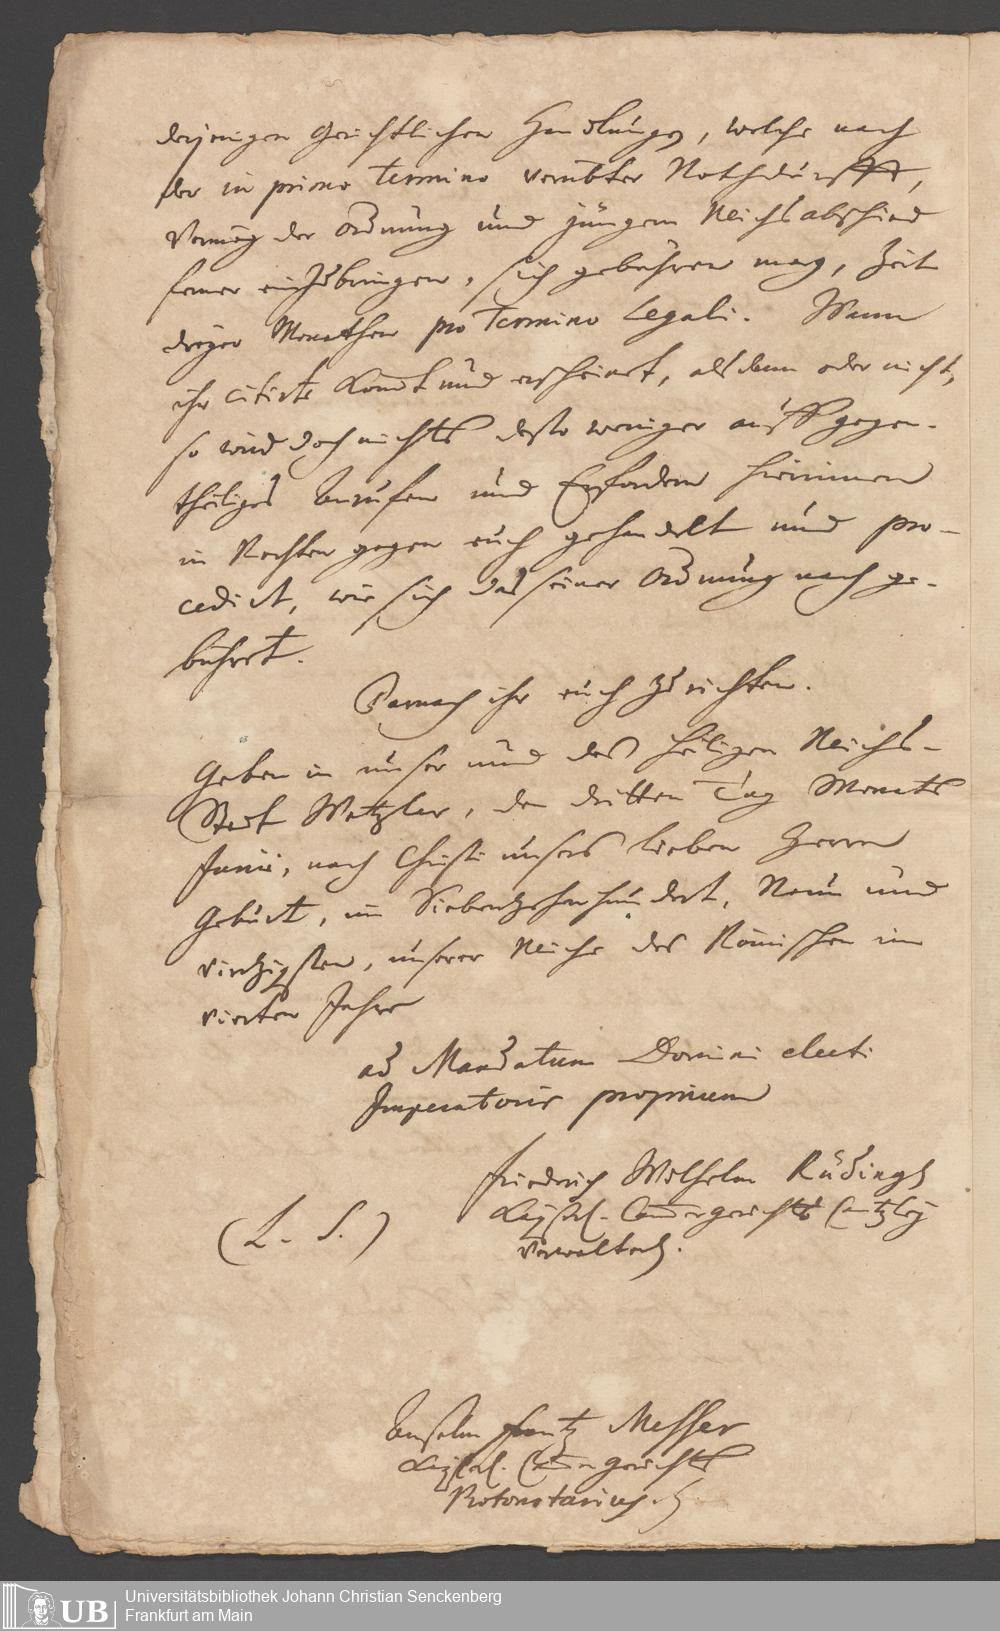 derjenigen Gerichtlichen Handlungen, welche nach
der in primo termino verübter Nothdurfft,
Vermög der Ordnung und jüngern Reichsabschied
ferner einzubringen, sich gebühren mag, Zeit
dreyer Monathen pro Termino Legali. Wann
ihr citirte kommt und erscheinet, alsdann oder nicht,
so wird doch nichts desto weniger auff gegen-
theiliges anrufen und Erfordern hierinnen
in Rechten gegen euch gehandelt und pro-
cedirt, wie sich das seiner Ordnung nach ge-
bühret.
Darnach ihr euch zu richten.
Geben in unser und des heiligen Reichs-
Stadt Wetzlar, den dritten Tag Monats
Junii, nach Christi unsers lieben Herrn
Geburt, im Siebentzehenhundert, Neun und
viertzigsten, unserer Reiche des Römischen im
vierten Jahre
ad Mandatum Domini electi
Imperatoris proprium
Friedrich Wilhelm Rüdinger
Kayserl. Cammergerichts Cantzley
Verwalter.
(L. S.)
Anselm Frantz Messer
Kayserl. Cammergerichts
Protonotarius.
UB
Universitätsbibliothek Johann Christian Senckenberg
Frankfurt am Main